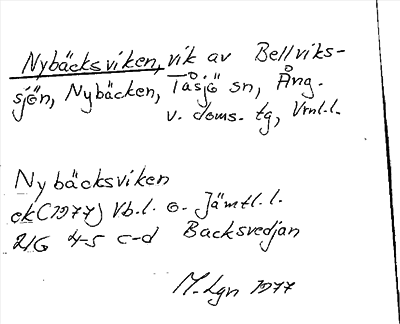 Nybäcksviken, vik av Bellviks-
sjön, Nybäcken, Tåsjö sn, Ång.
v. doms. tg, Vrnl.l.
Nybäcksviken
ek (1977) Vb.l. o. Jämtl.l.
21G 4-5 c-d Backsvedjan
M. Lgn 1977